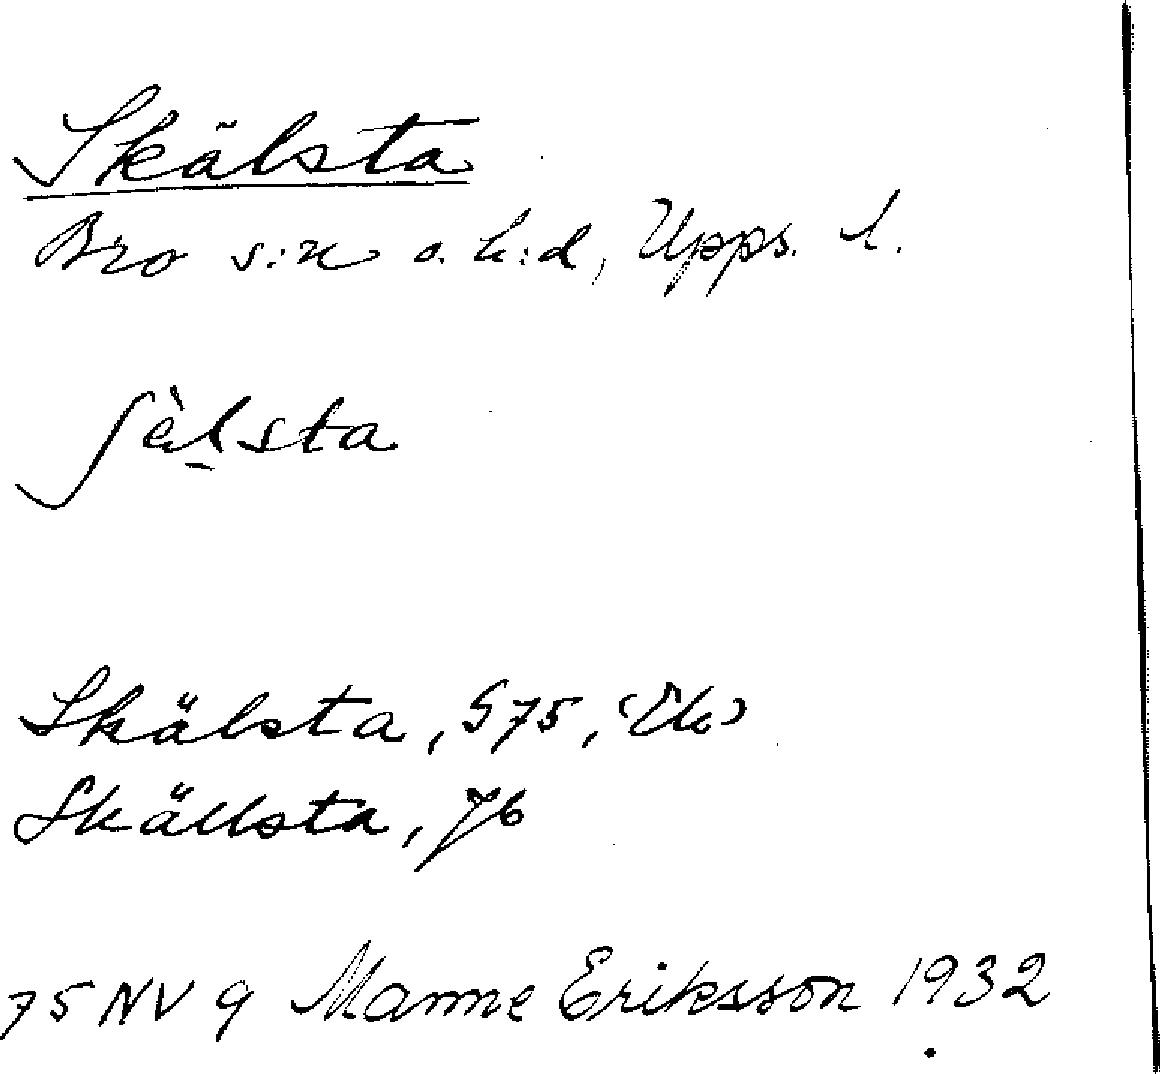 Skälsta
Bro s:n o. h:d, Upps. l.
ʃèl̠sta
Skälsta, S75, (Ek)
Skällsta, Jb
75 NV 9 Manne Eriksson 1932